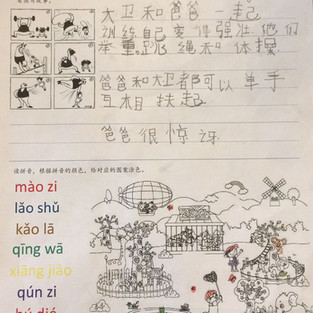 大卫和爸爸一起
训练自己变得强壮他们
举重跳绳和体操
爸爸和大卫都可以单手
互相扶起
爸爸很惊讶
读拼音，根据拼音的颜色，给对应的图案涂色。
mào zi
lǎo shǔ
kǎo lā
qīng wā
xiāng jiāo
qún zi
hú dié